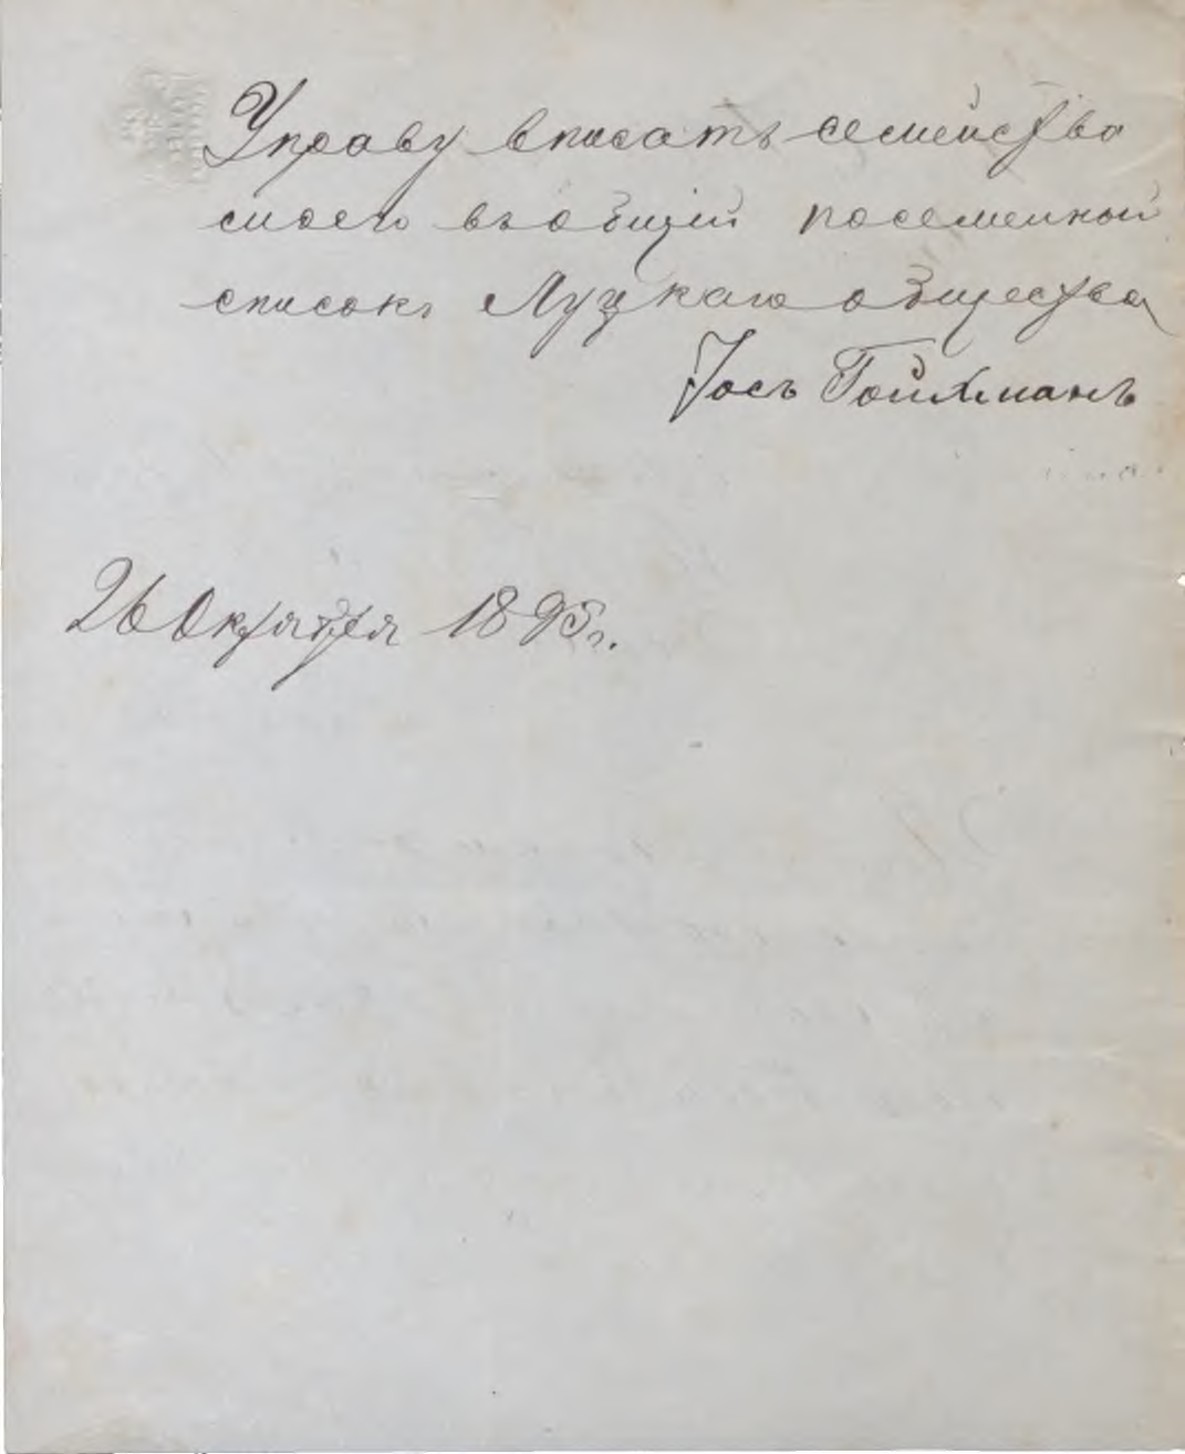 Управу вписать семейство
моего въ общій посемейный
списокъ Луцкаго общества
Іось Гойхманъ
26 Октября 1895 г.